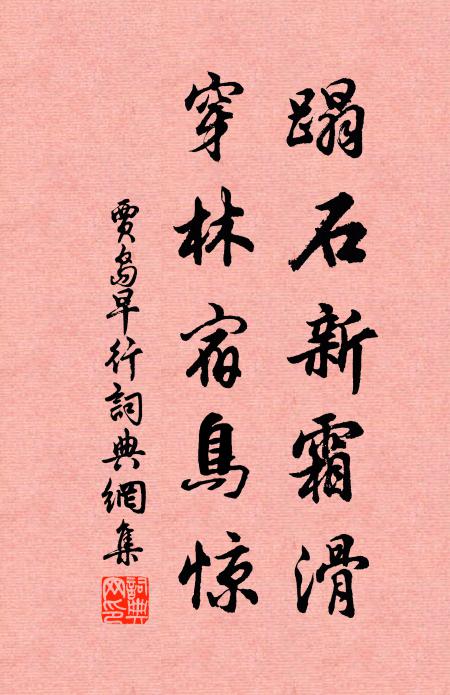 蹋石新霜滑
穿林宿鳥惊
賈島早行詞典網集
詞典網印